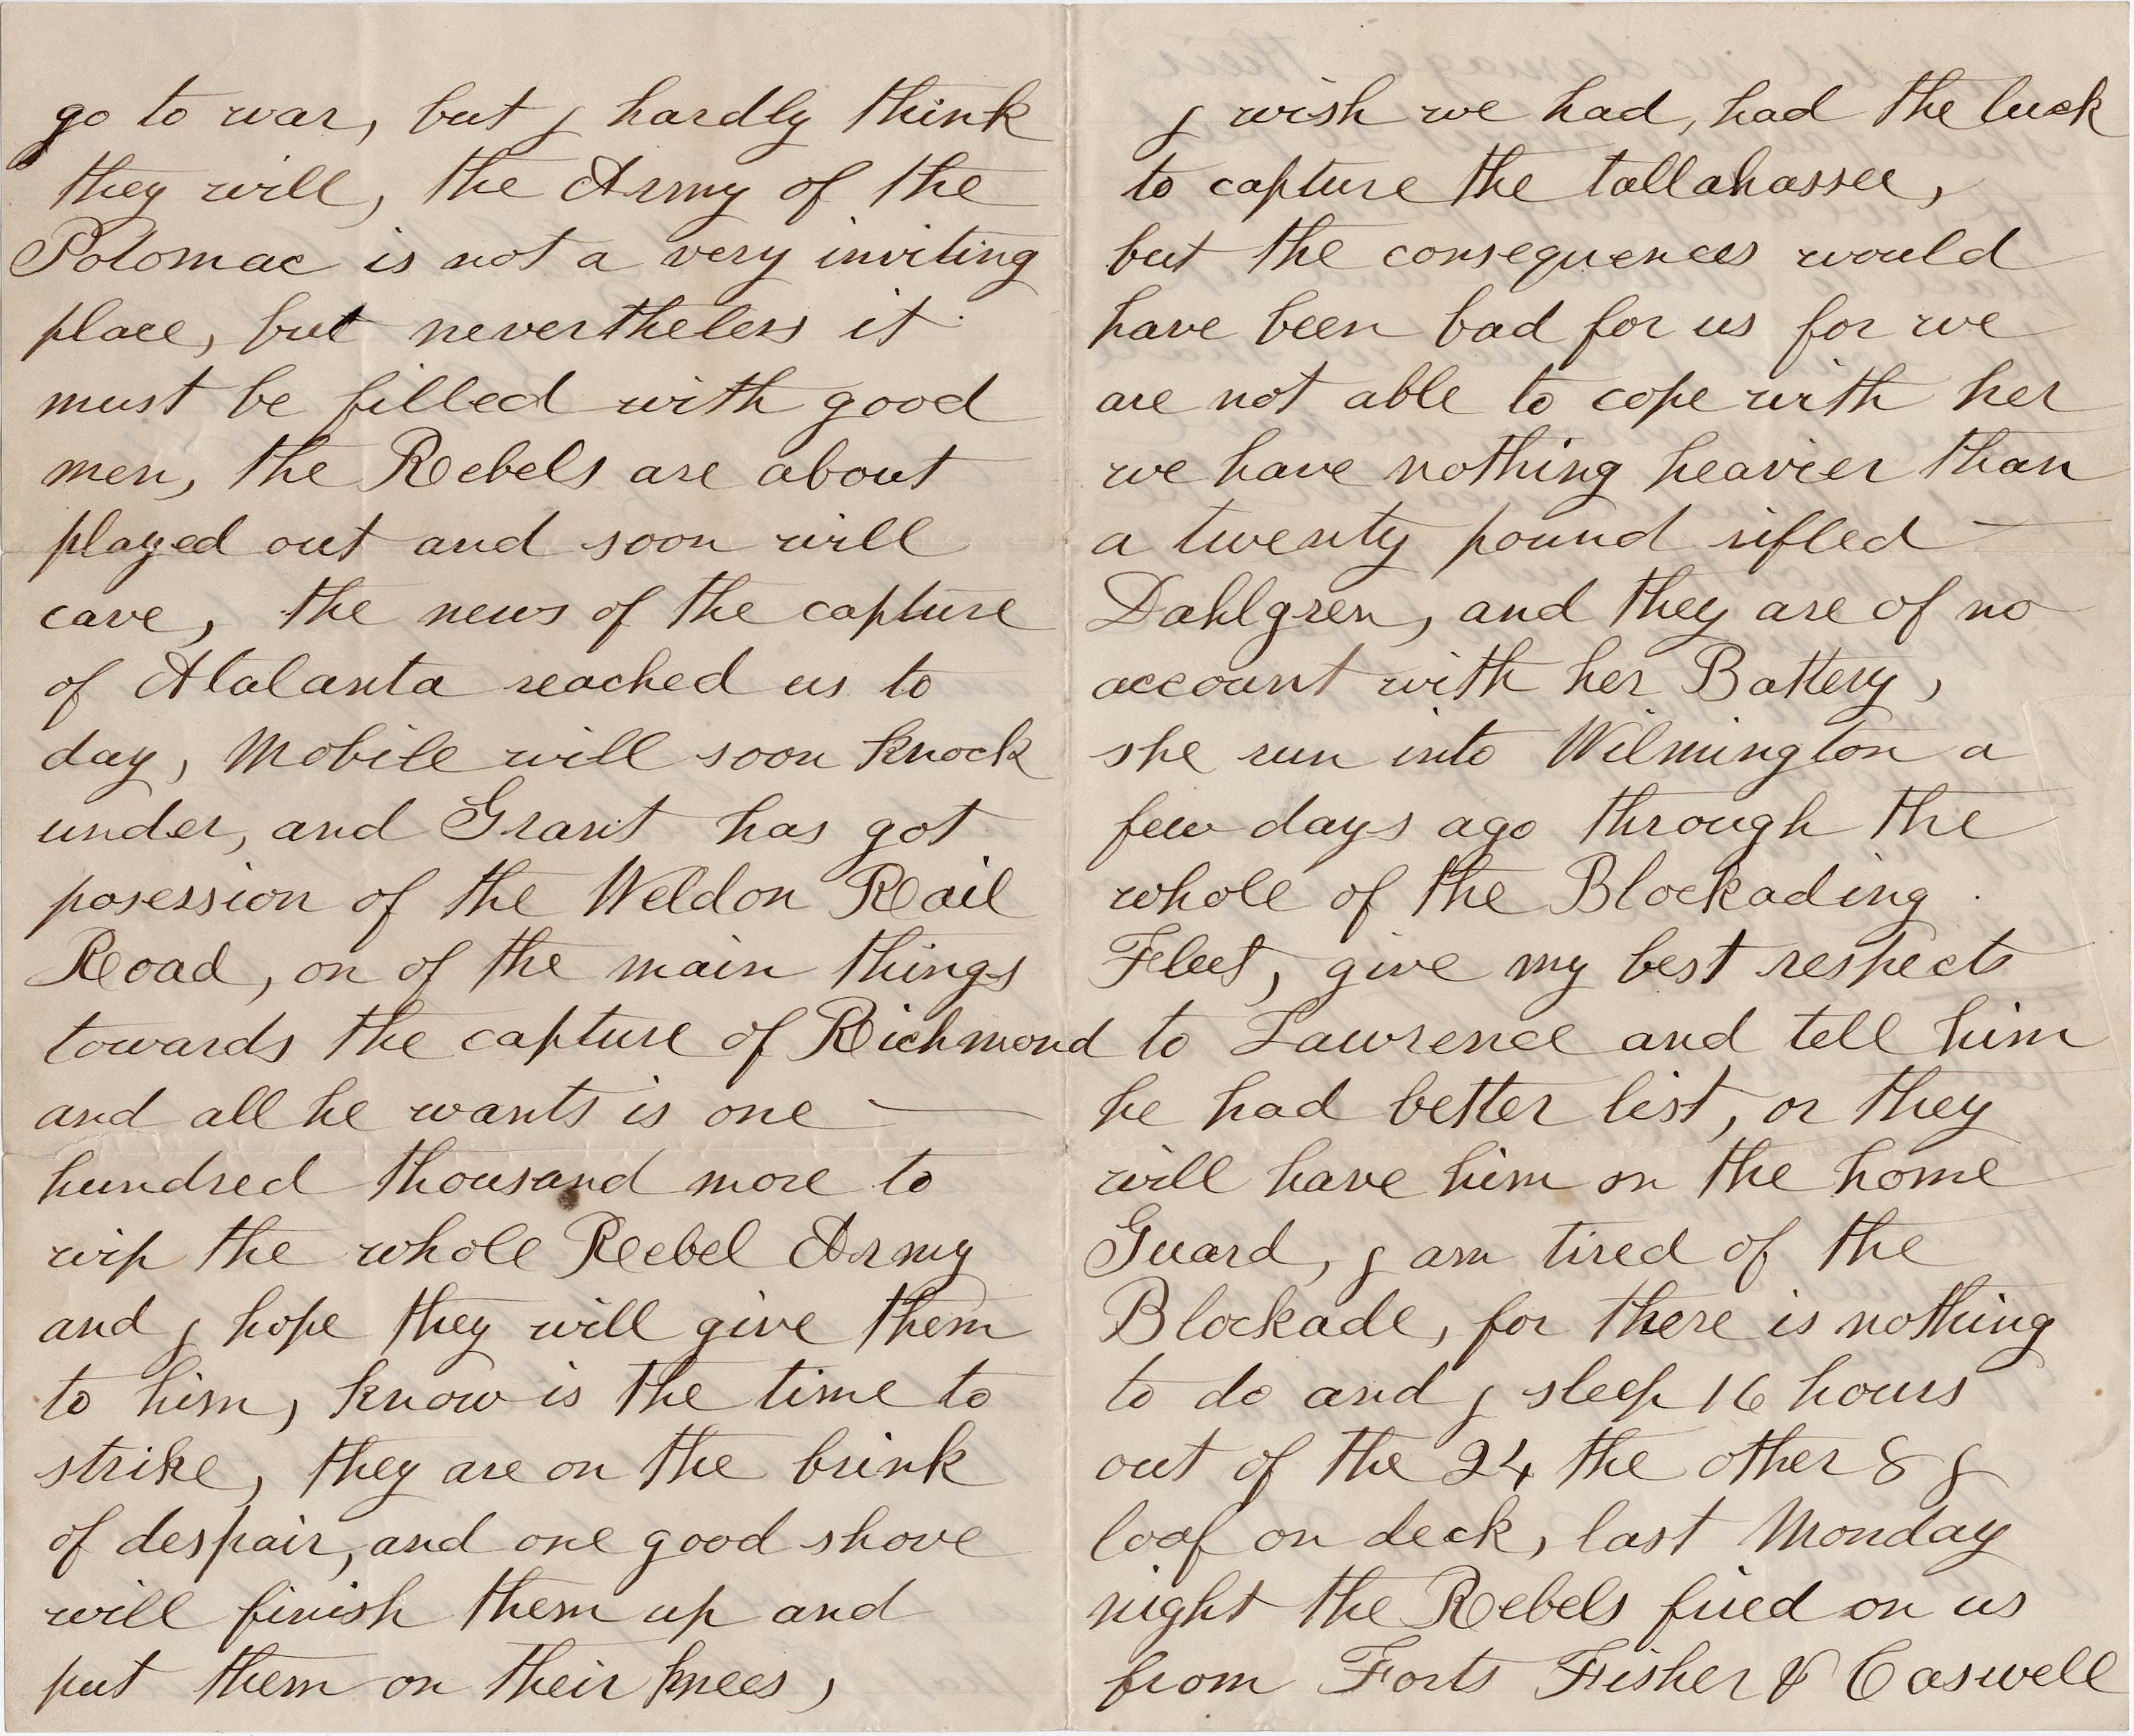 go to war, but I hardly think
they will, the Army of the
Potomac is not a very inviting
place, but nevertheless it
must be filled with good
men, the Rebels are about
played out and soon will
cave, the news of the capture
of Atalanta reached us to
day, Mobile will soon knock
under, and Grant has got
posession of the Weldon Rail
Road, on of the main things
towards the capture of Richmond
and all he wants is one —
hundred thousand more to
wip the whole Rebel Army
and I hope they will give them
to him, know is the time to
strike, they are on the brink
of despair, and one good shove
will finish them up and
put them on their knees,
I wish we had, had the luck
to capture the tallahassee,
but the consequences would
have been bad for us for we
are not able to cope with her
we have nothing heavier than
a twenty pound rifled —
Dahlgren, and they are of no
account with her Battery,
she run into Wilmington a
few days ago through the
whole of the Blockading
Fleet, give my best respects
to Lawrence and tell him
he had better list, or they
will have him on the home
Guard, I am tired of the
Blockade, for there is nothing
to do and I sleep 16 hours
out of the 24 the other 8 I
loaf on deck, last Monday
night the Rebels fired on us
from Forts Fisher & Caswell